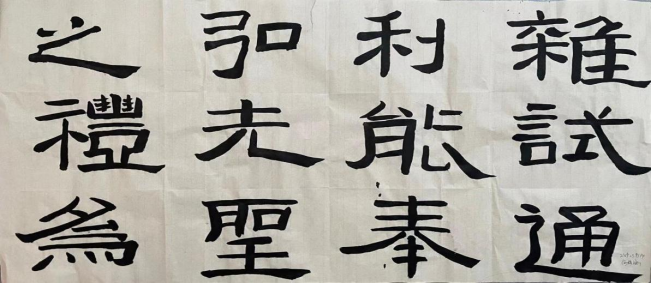 雜試通
利能奉
弘先聖
之禮為